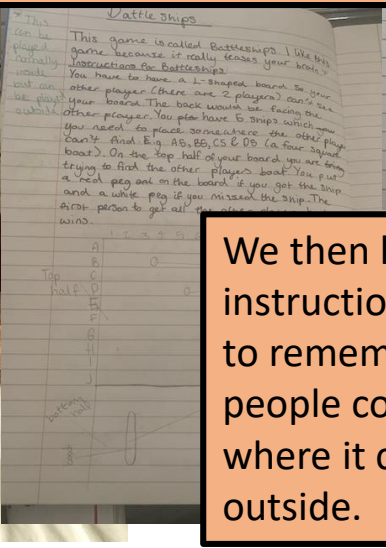 Battle ships
* This can be played normally inside but can be played outside.
This game is called Battleships. I like this
game because it really teases your brain.
Instructions for Battleships
You have to have a L-shaped board so your
other player (there are 2 players) can't see
your board. The back would be facing the
other player. You have 5 ships which
you need to place somewhere the other player
can't find. E.g. A5, B5, C5 & D5 (a four square
boat). On the top half of your board you are
trying to find the other players boat. You put
a red peg on the board if you got the ship
and a white peg if you missed the ship. The
first person to get all the
wins.
1 2 3 4 5
A
B
C
D
E
F
G
H
I
J
Top half
bottom half
We then
instructio
to remem
people co
where it
outside.